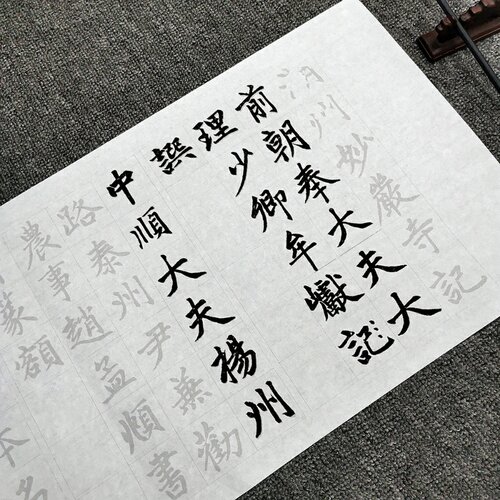 湖州妙嚴寺記
前朝奉大夫大
理少卿牟巘記
譔
中順大夫楊州
路泰州尹兼勸
農事趙孟頫書
篆額
本名